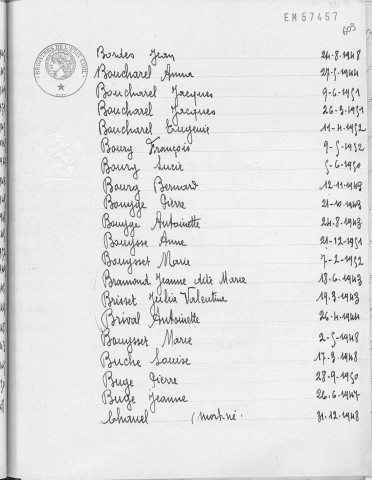 EM57457
609
REGISTRES DE L'ETAT CIVIL
Bordes Jean 24-8-1948
Boucharel Anna 27-5-1944
Boucharel Jacques 9-6-1951
Boucharel Jacques 26-3-1951
Boucharel Eugenie 11-4-1952
Bourg François 9-5-1952
Bourg Lucie 5-6-1950
Bourg Bernard 12-11-1949
Bouyge Pierre 21-10-1949
Bouyge Antoinette 24-8-1943
Bouysse Anne 21-12-1951
Bouysset Marie 7-2-1952
Bramond Jeanne dite Marie 18-6-1943
Brisset Jéilia Valentine 19-3-1943
Brival Antoinette 26-4-1944
Bouysset Marie 2-5-1948
Buche Louise 17-3-1948
Buge Pierre 28-9-1950
Buge Jeanne 26-6-1947
Chanel (mort-né. 31-12-1948